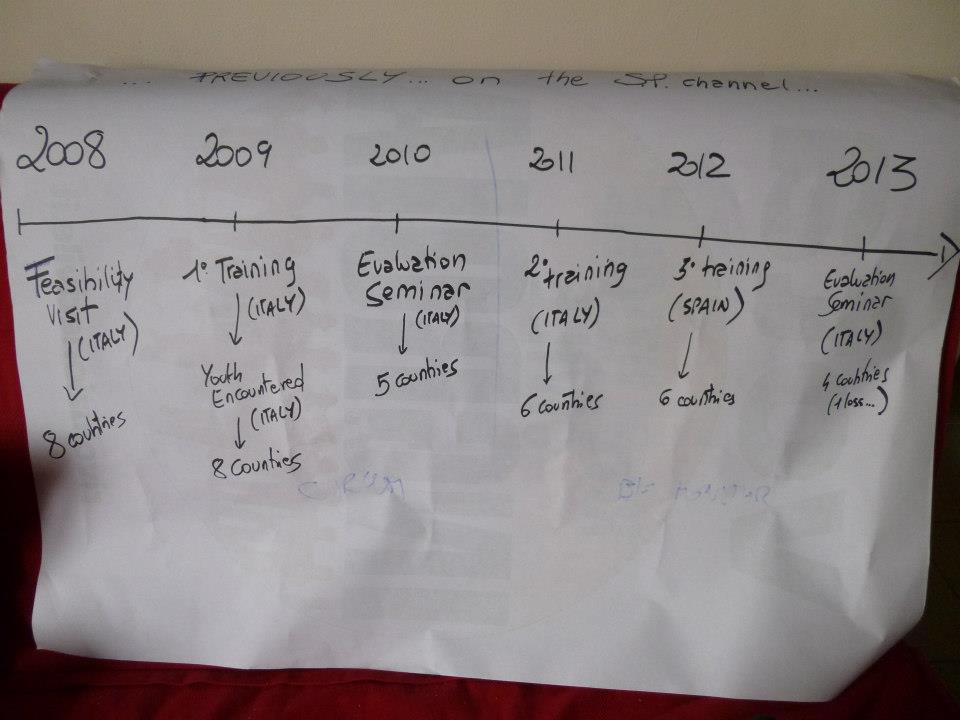 ... PREVIOUSLY... on the SP. channel...
2008
2009
2010
2011
2012
2013
Feasibility
visit
(ITALY)
8 countries
1° Training
(ITALY)
Youth
Encountered
(ITALY)
8 countries
Evaluation
Seminar
(ITALY)
5 countries
2° training
(ITALY)
6 countries
3° training
(SPAIN)
6 countries
Evaluation
Seminar
(ITALY)
4 countries
(1 loss...)